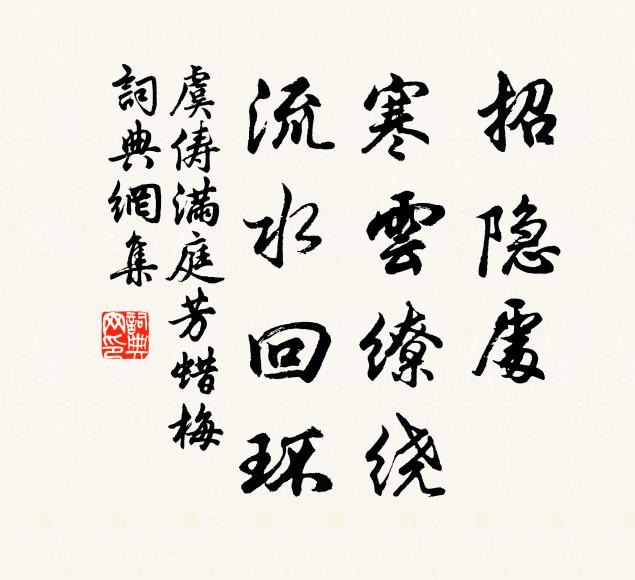 招隐處
寒雲繚绕
流水回环
虞俦满庭芳蜡梅
詞典網集
詞典網印